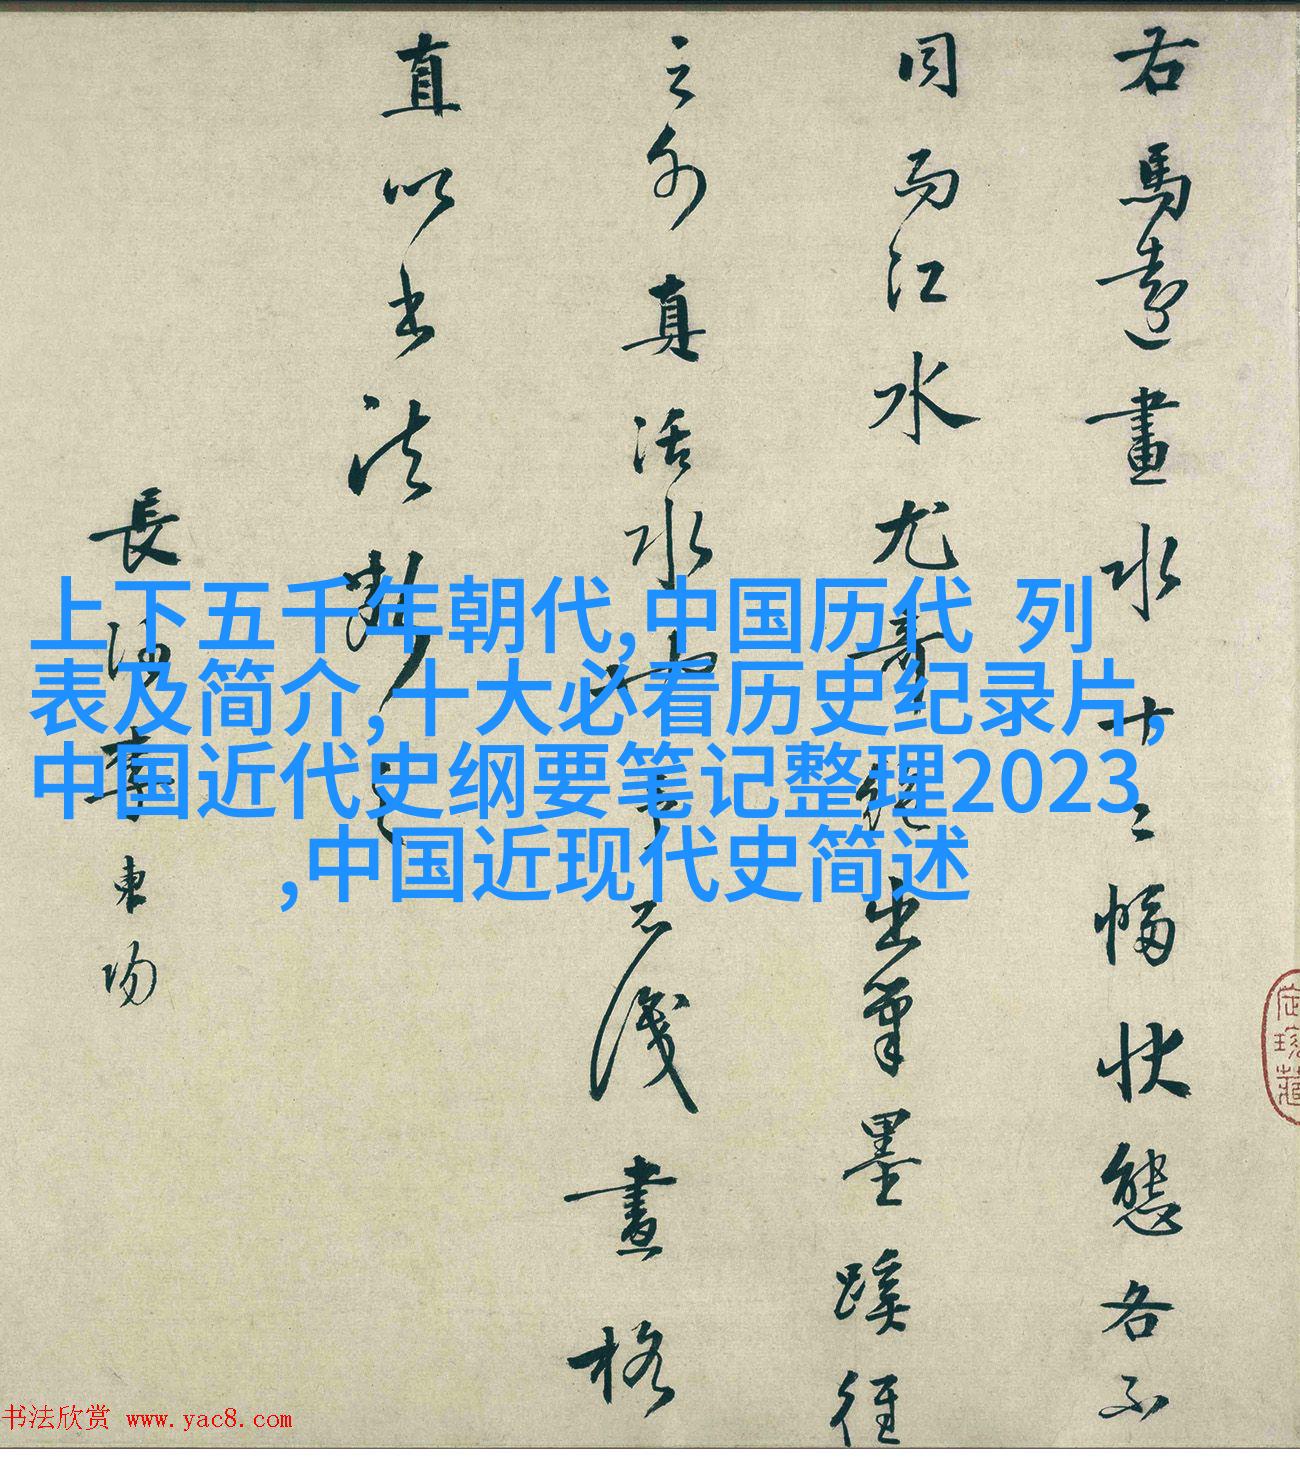 右馬遠畫水十二幅狀態各不
同而江水尤奇絕出筆墨蹊徑
之外真活水也予不識畫格
直以書法斷之
長沙李東陽
上下五千年朝代,中国历代 列
表及简介,十大必看历史纪录片,
中国近代史纲要笔记整理2023
,中国近现代史简述
书法欣赏 www.yac8.com